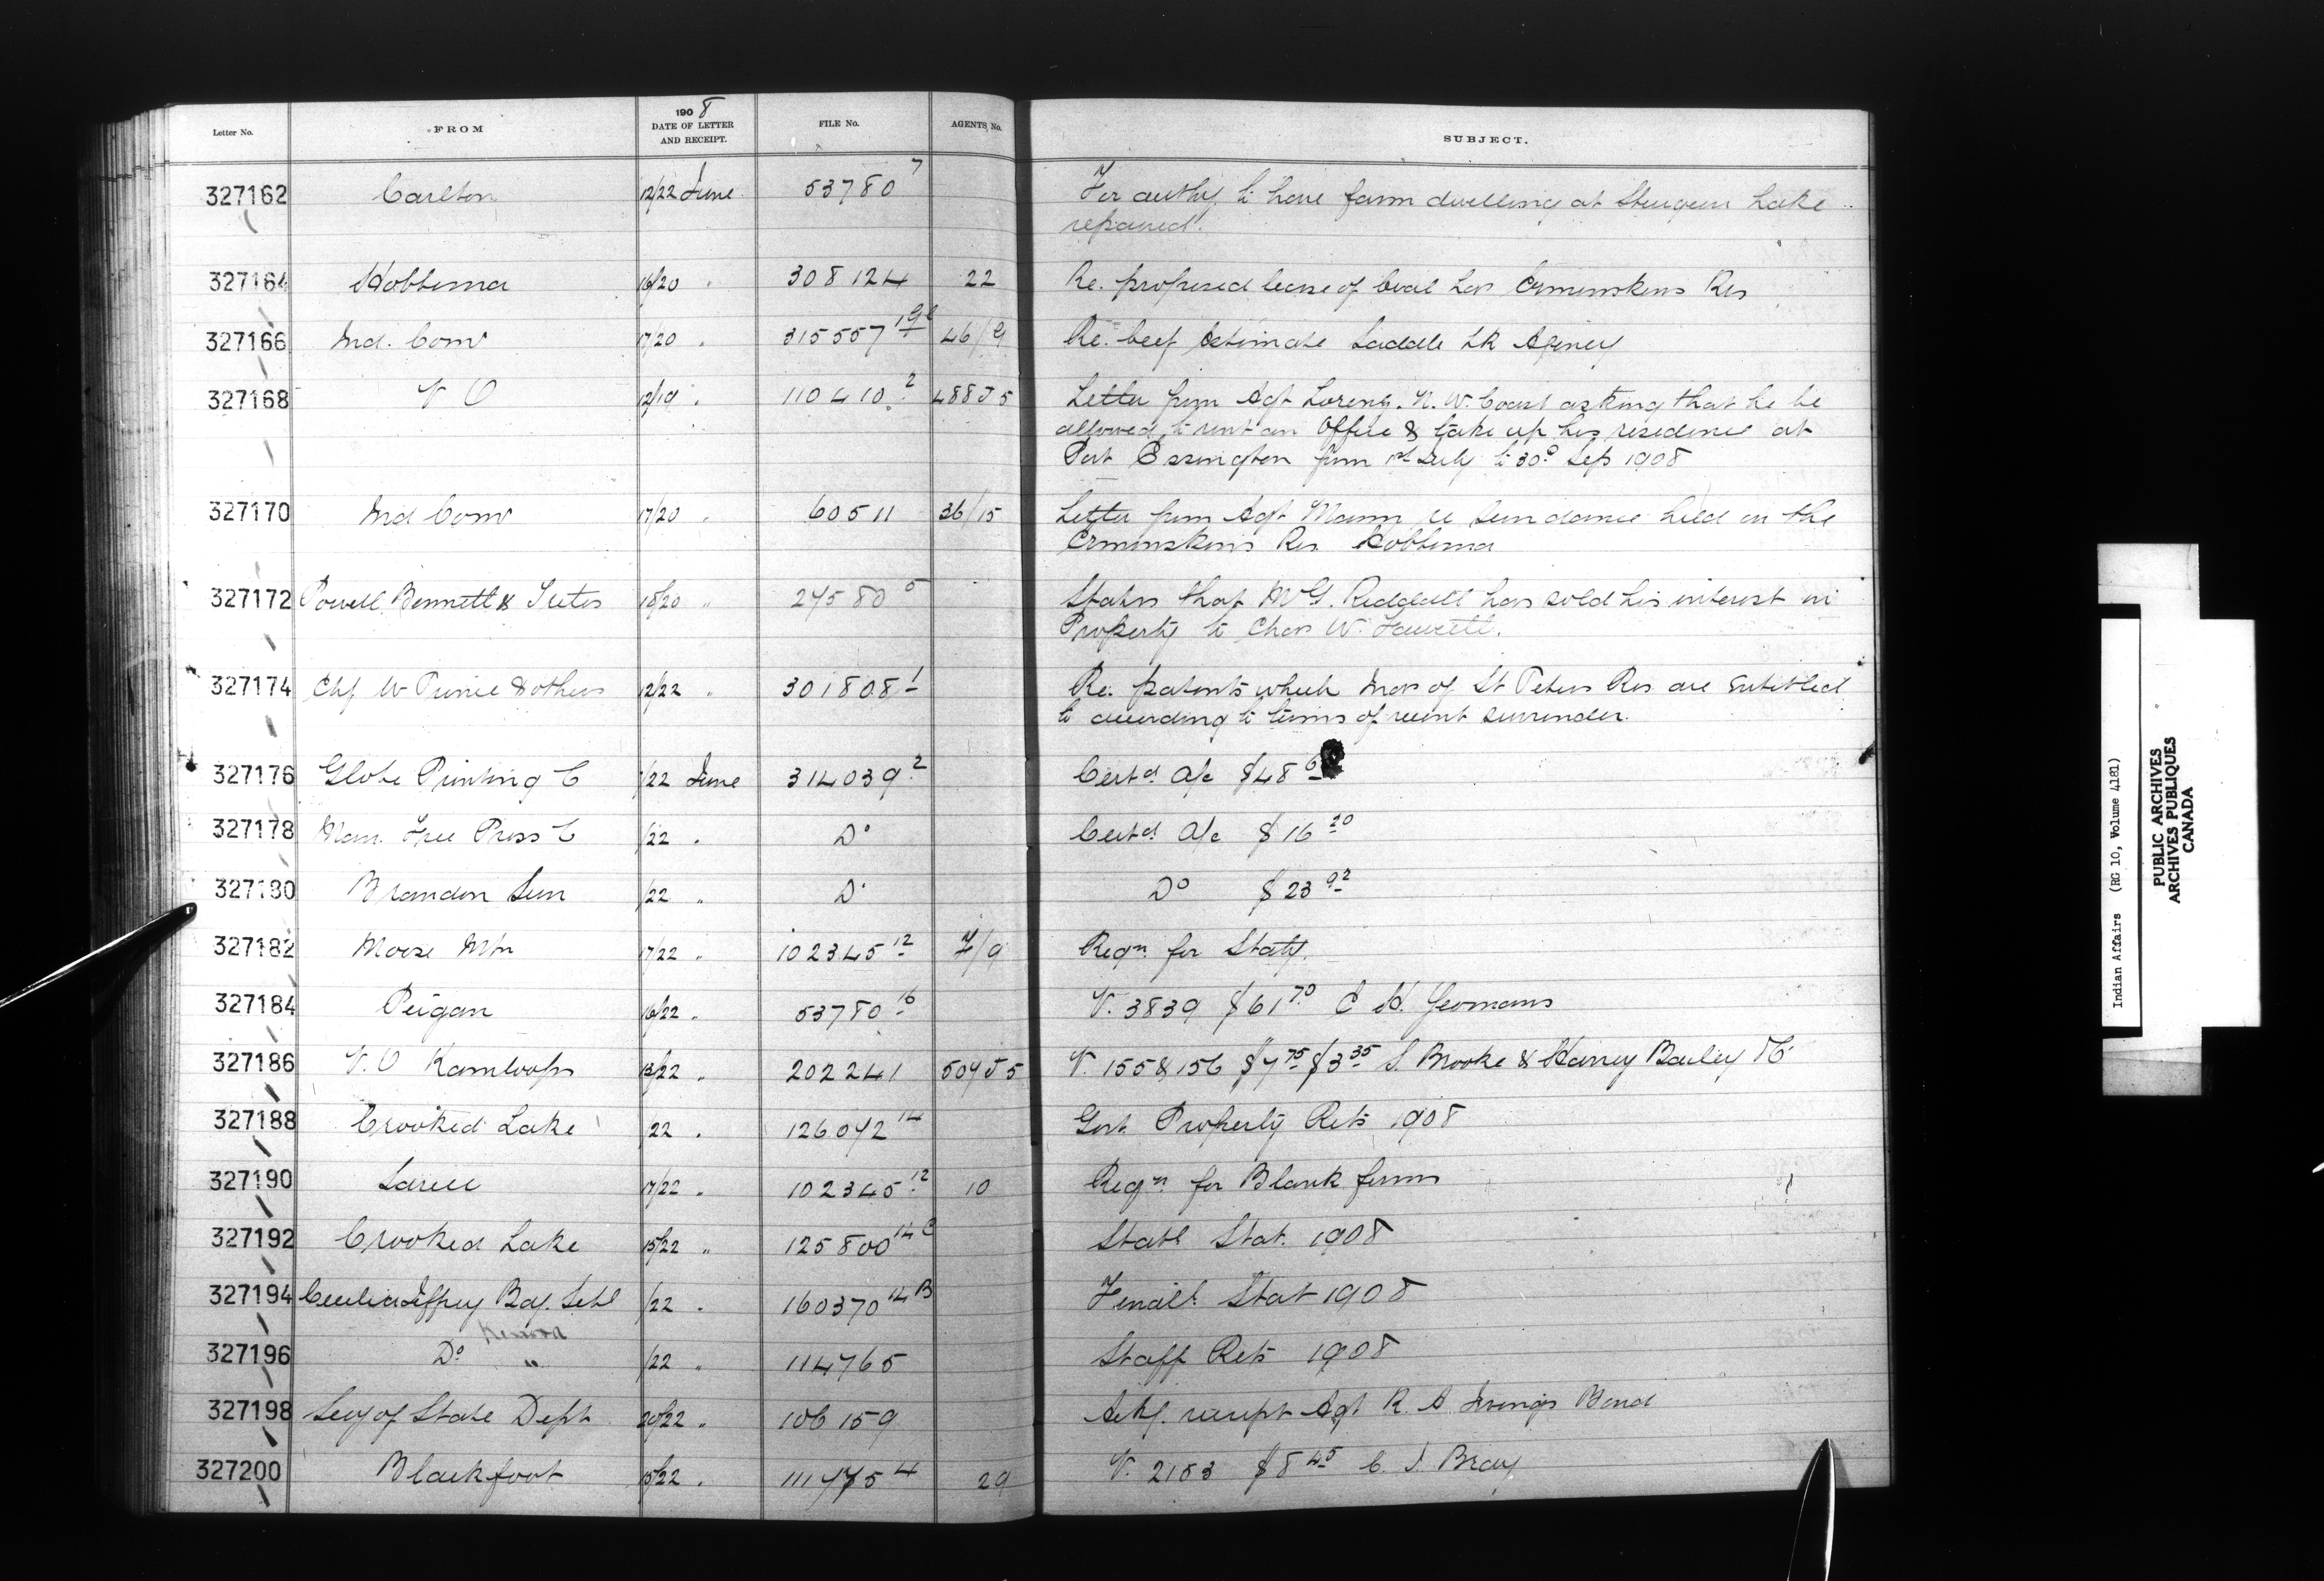 Letter No. FROM 1908 DATE OF LETTER AND RECEIPT. FILE No. AGENTS No. SUBJECT.
327162 Carlton 12/22 June 53780 7 For authy. to have farm dwelling at Sturgeon Lake
repaired.
327164 Hobbema 16/20 " 308124 22 Re. proposed lease of Coal Ermineskins Res
327166 Ind. Comr 17/20 " 315557 46/9 Re. beef Estimate Saddle Lk Agency
327168 V O 12/19 " 110410 2 488J5 Letter from Agt Loring. N. W. Coast asking that he be
allowed to rent an Office & take up his residence at
Port Essington from 1st July to 30th Sep 1908
327170 Ind Comr 17/20 " 60511 36/15 Letter from Agt Mann re Sun dance held on the
Ermineskins Res. Hobbema
327172 Powell, Bennett & 18/20 " 24580 5 States that Mr G. Riddall has sold his interest in
Property to Chas W. Fawcett.
327174 Chf W Prince & others 12/22 " 301808 1 Re. patents which Inds of St Peters Res are entitled
to according to terms of recent surrender.
327176 Globe Printing C /22 June 314039 2 Certd. a/c $48
327178 Man. Free Press C /22 " Do Certd. a/c $16 20
327180 Brandon Sun /22 " Do Do $23 92
327182 Moose Mtn 17/22 " 102345 12 7/9 Reqn. for Staty.
327184 Peigan 16/22 " 53780 16 V. 3839 $61 70 E H. Yeomans
327186 V. O Kamloops 13/22 " 202241 504J5 V. 155 & 156 $4 75 $3 35 S. Brooke & Harvey Bailey & C
327188 Crooked Lake /22 " 126042 14 Govt. Property Rets 1908
327190 Sarcee 17/22 " 102345 12 10 Reqn. for Blank forms
327192 Crooked Lake 15/22 " 125800 14C Statl Stat. 1908
327194 Cecilia Jeffrey Bdg. Schl /22 " 160370 14B Finail. Stat 1908
Kenora
327196 Do " /22 " 114765 Staff Rets 1908
327198 Secy of State Dept 20/22 " 106159 Ackg. receipt Agt R. A. Irvings Bond
327200 Blackfoot 15/22 " 111475 4 29 V. 2153 $8 45 C. J. Bray
Indian Affairs (RG 10, Volume 4181)
PUBLIC ARCHIVES
ARCHIVES PUBLIQUES
CANADA